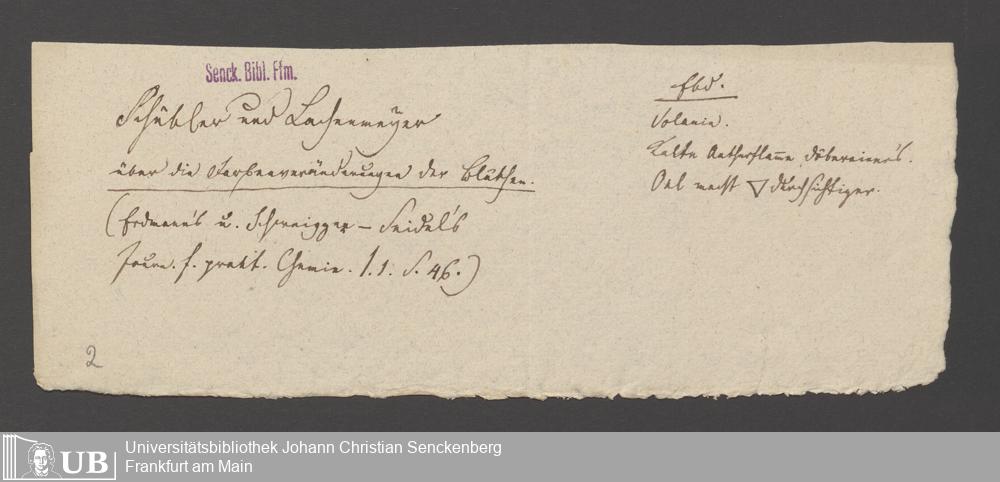 Senck. Bibl. Ffm.
Schübler und Lachenmeyer
über die Farbenveränderungen der Blüthen.
(Erdmann's u. Schweigger-Seidel's
Journ. f. prakt. Chemie. 1.1. S. 46.)
Ebd.
Solanin.
Kalte Aetherflamme Döbereiner's.
Oel macht ▽ durchsichtiger.
2
UB
Universitätsbibliothek Johann Christian Senckenberg
Frankfurt am Main